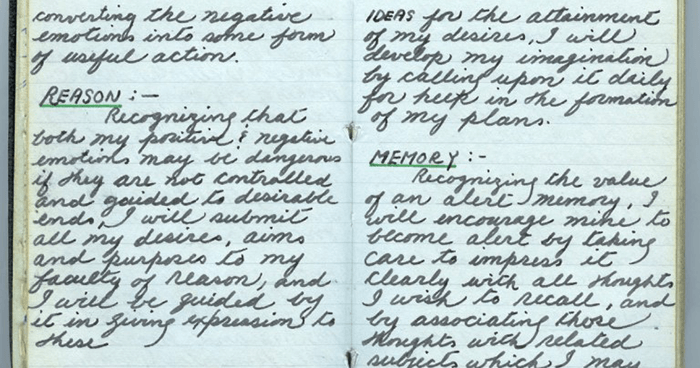 converting the negative
emotions into some form
of useful action.
REASON :—
Recognizing that
both my positive & negative
emotions may be dangerous
if they are not controlled
and guided to desirable
ends, I will submit
all my desires, aims
and purposes to my
faculty of reason, and
I will be guided by
it in giving expression to
these
IDEAS for the attainment
of my desires, I will
develop my imagination
by calling upon it daily
for help in the formation
of my plans.
MEMORY :-
Recognizing the value
of an alert memory, I
will encourage mine to
become alert by taking
care to impress it
clearly with all thoughts
I wish to recall, and
by associating those
thoughts with related
subjects which I may